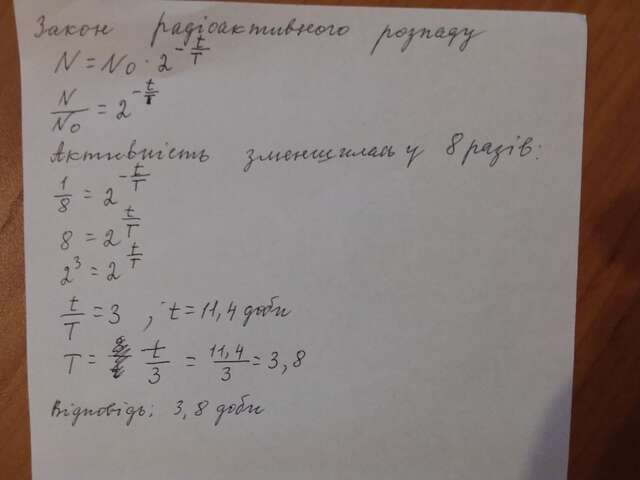 Закон радіоактивного розпаду
N = N₀ · 2^(-t/T)
N/N₀ = 2^(-t/T)
Активність зменшилась у 8 разів:
1/8 = 2^(-t/T)
8 = 2^(t/T)
2³ = 2^(t/T)
t/T = 3 ; t = 11,4 доби
T = t/3 = 11,4/3 = 3,8
Відповідь: 3,8 доби